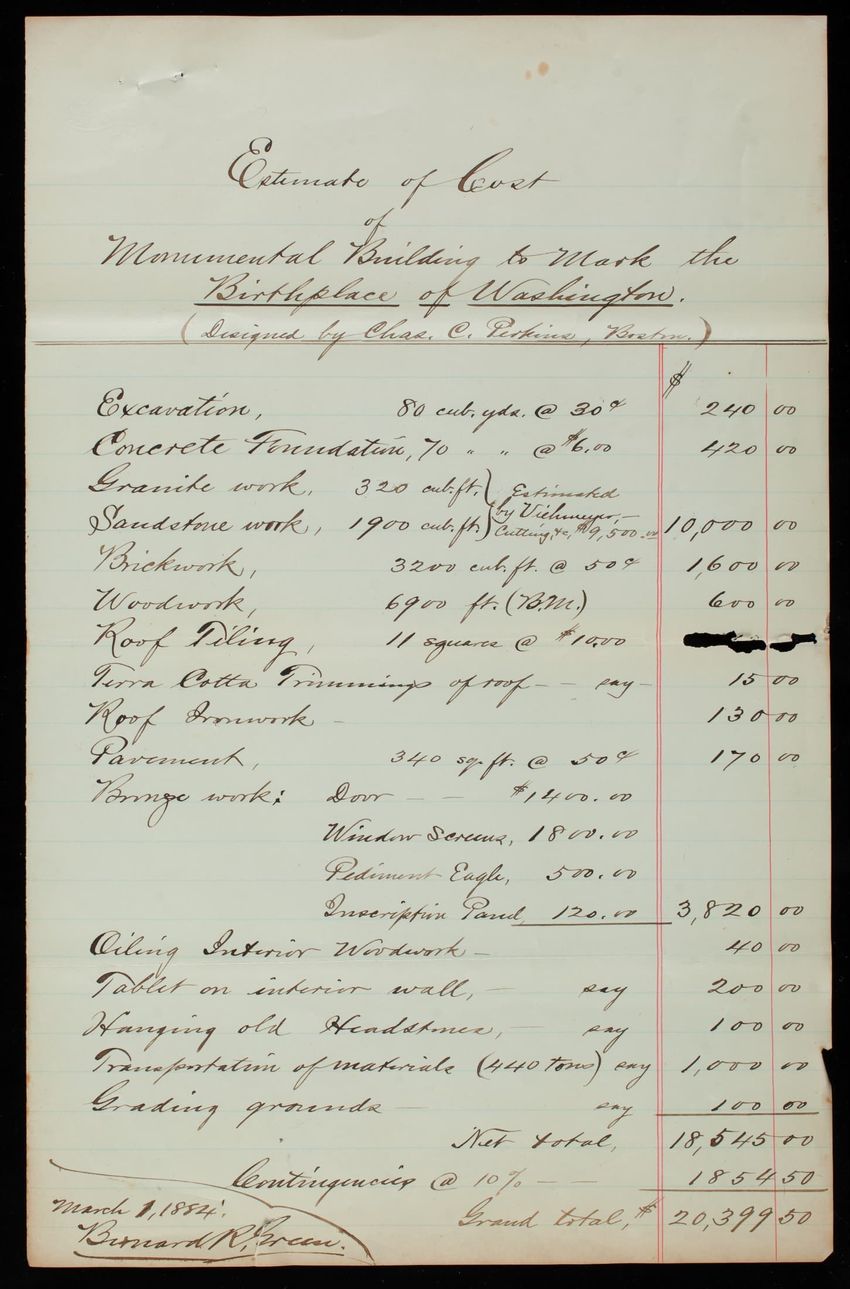 Estimate of Cost
of
Monumental Building to Mark the
Birthplace of Washington.
(Designed by Chas. C. Perkins, Boston.)
$
Excavation, 80 cub. yds. @ 30¢ 240 00
Concrete Foundation, 70 " " @ $6.00 420 00
Granite work, 320 cub. ft. } Estimated
by Viehmeyer, —
Sandstone work, 1900 cub. ft. } Cutting, &c, $9,500.00 10,000 00
Brickwork, 3200 cub. ft. @ 50¢ 1,600 00
Woodwork, 6900 ft. (B.M.) 600 00
Roof Tiling, 11 squares @ $10.00
Terra Cotta Trimmings of roof — — say — 15 00
Roof Ironwork — 130 00
Pavement, 340 sq. ft. @ 50¢ 170 00
Bronze work: Door — — $1400.00
Window Screens, 1800.00
Pediment Eagle, 500.00
Inscription Panel, 120.00 3,820 00
Oiling Interior Woodwork — 40 00
Tablet on interior wall, — say 200 00
Hanging old Headstones, — say 100 00
Transportation of materials (440 tons) say 1,000 00
Grading grounds — say 100 00
Net total, 18,545 00
Contingencies @ 10% — — 1854 50
Grand total, $ 20,399 50
March 1, 1884.
Bernard R. Green.